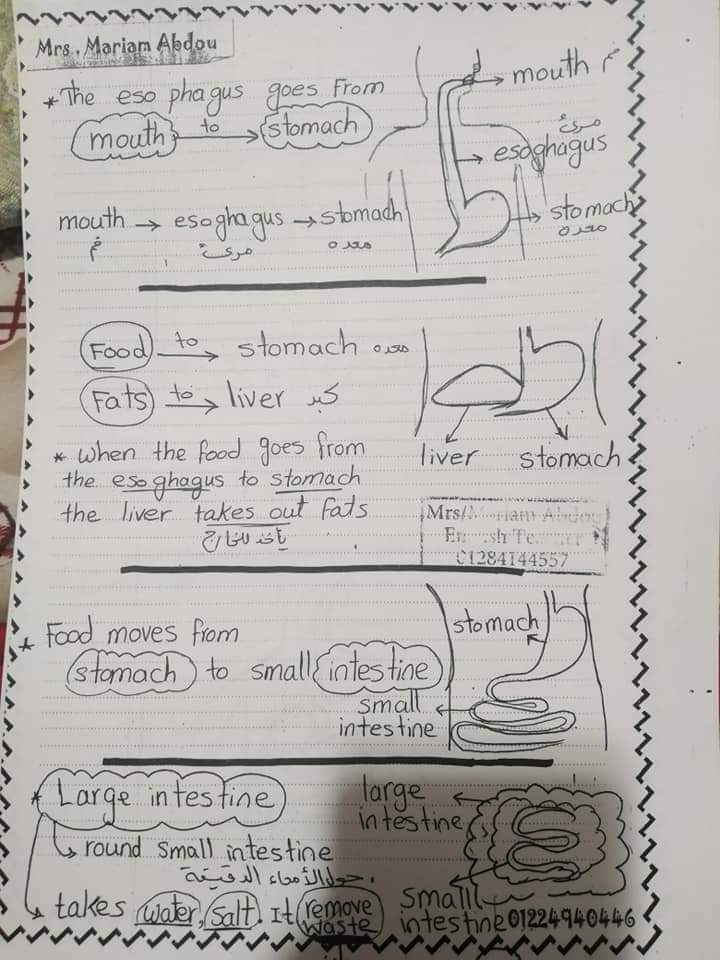 Mrs. Mariam Abdou
* The esophagus goes from
mouth to → stomach
→ mouth فم
مرئ
→ esoghagus
→ stomach
معده
mouth → esoghagus → stomach
فم مرئ معده
Food to → stomach معده
Fats to → liver كبد
liver stomach
* When the food goes from
the esoghagus to stomach
the liver takes out fats
يأخذ للخارج
Mrs/ Mariam Abdou
English Teacher
01284144557
* Food moves from
stomach to small intestine
stomach
small
intestine
* Large intestine
↳ round small intestine
حول الأمعاء الدقيقة.
→ takes water, salt. It remove
waste
large
intestine
small
intestine
01224940446